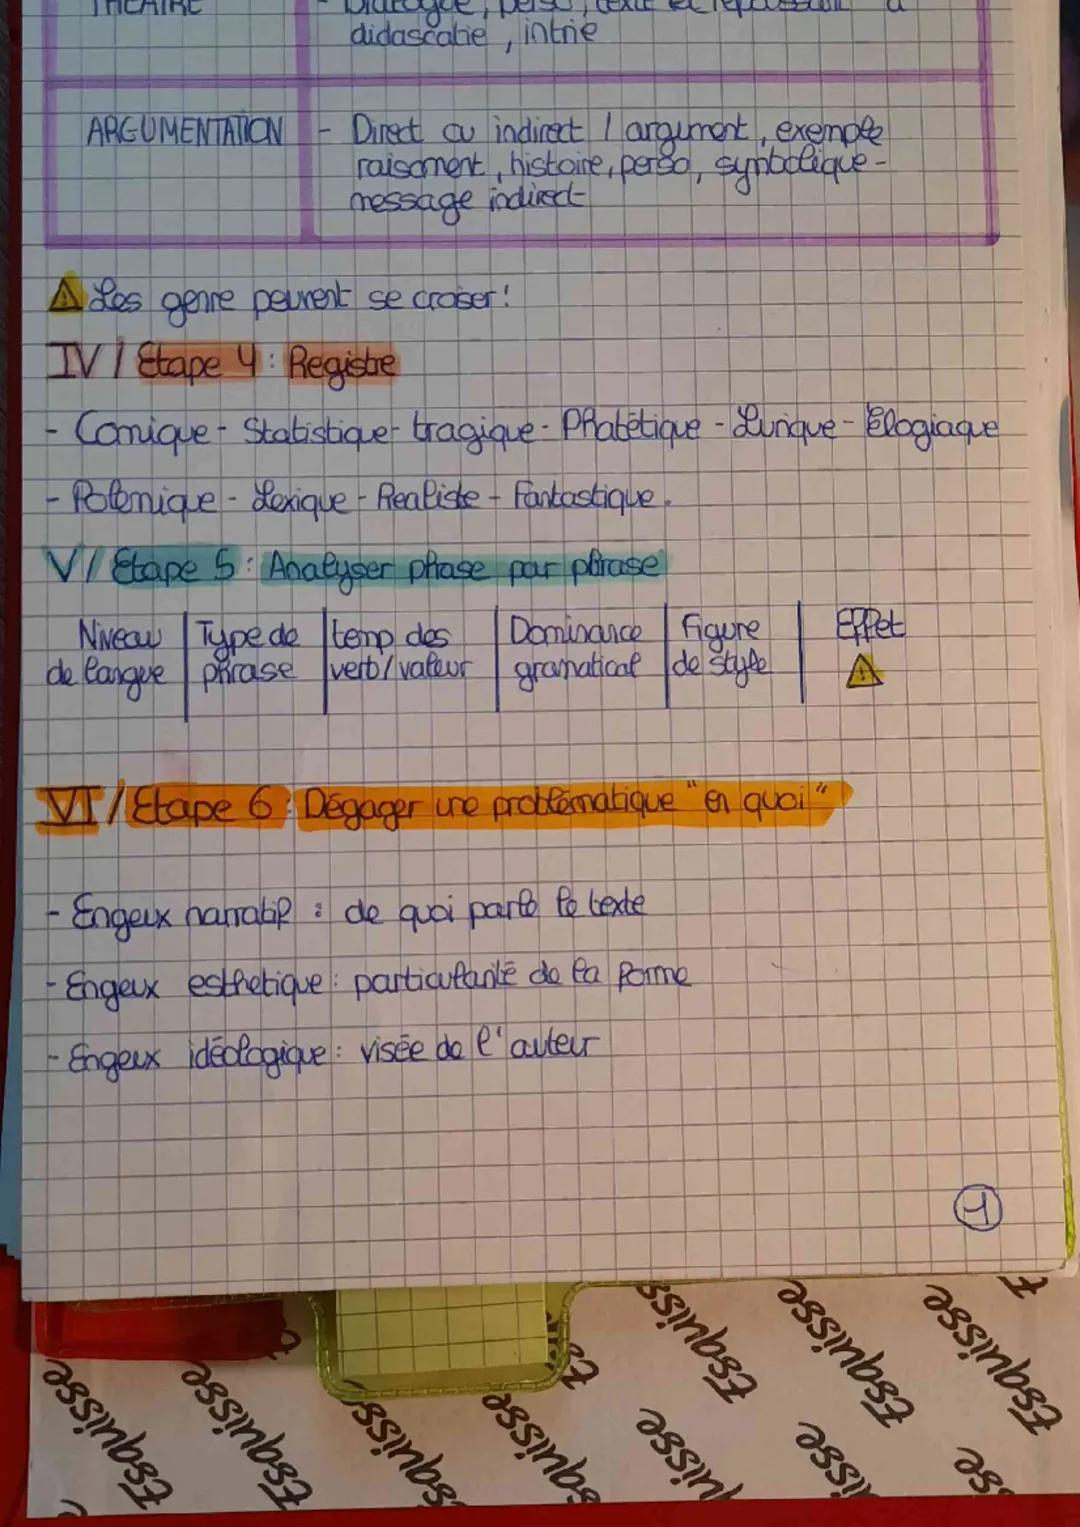 THEATRE
- Dialogue, perso, texte et
didascalie, intrie
ARGUMENTATION - Direct ou indirect / argument, exemple
raisoment, histoire, perso, symbolique -
message indirect
⚠ Les genre peuvent se croiser!
IV / Etape 4 : Registre
- Comique - Statistique - tragique - Phatétique - Lirique - Elogiaque
- Polémique - Lexique - Realiste - Fantastique.
V / Etape 5 : Analyser phase par phrase
Niveau | Type de | temp des | Dominance | Figure | Effet
de langue | phrase | verb / valeur | gramatical | de style | ⚠
VI / Etape 6 : Dégager une problématique "en quoi"
- Engeux narratif : de quoi parle le texte
- Engeux esthetique : particularité de la forme
- Engeux idéologique : visée de l'auteur
1
Esquisse Esquisse Esquisse
Esquisse Esquisse Esquisse Esquisse